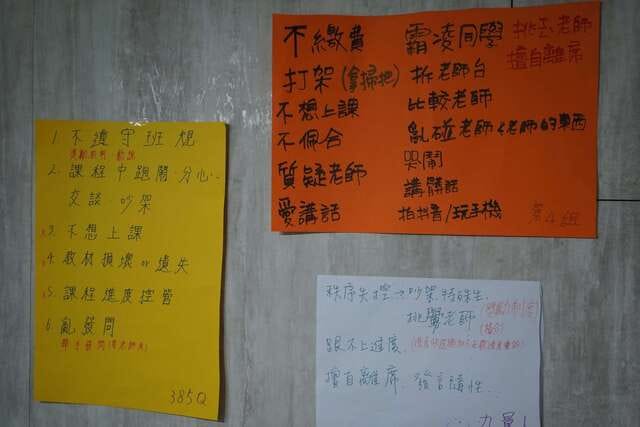 1. 不遵守班規
獎勵教育、勸說
2. 課程中跑開、分心、
交談 吵架
3. 不想上課
4. 教材損壞or遺失
5. 課程進度控管
6. 亂發問
舉手發問(等老師點)
385Q
不繳費
打架(拿掃把)
不想上課
不佩合
質疑老師
愛講話
霸凌同學
拆老師台
比較老師
亂碰老師/老師的東西
哭鬧
講髒話
拍抖音/玩手機
挑去老師
擅自離席
第4組
秩序失控→吵架、特殊生、
挑釁老師
跟不上進度、
擅自離席、發言隨性、
九星!